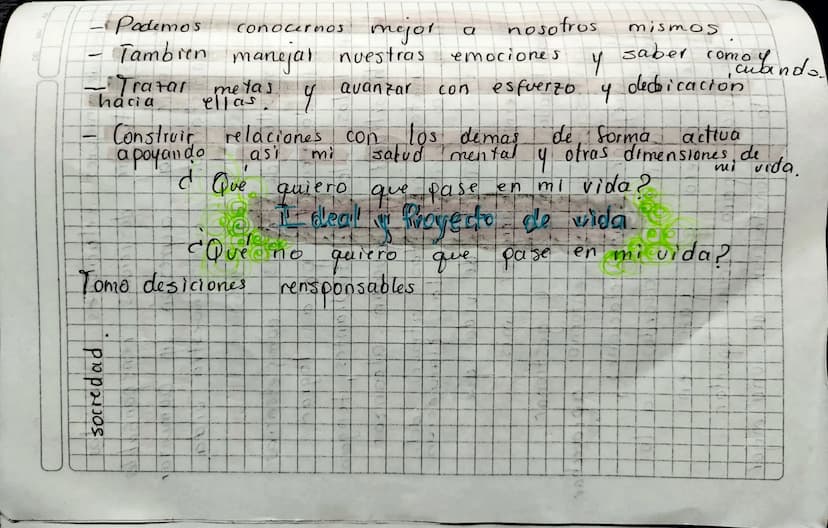 - Podemos conocernos mejor a nosotros mismos.
- Tambien manejar nuestras emociones y saber como y
cuando.
- Trazar metas y avanzar con esfuerzo y dedicacion
hacia ellas.
- Construir relaciones con los demas de forma activa
apoyando asi mi salud mental y otras dimensiones de
mi vida.
¿Qué quiero que pase en mi vida?
Ideal y Proyecto de vida
¿Qué no quiero que pase en mi vida?
Tomo desiciones rensponsables
sociedad.